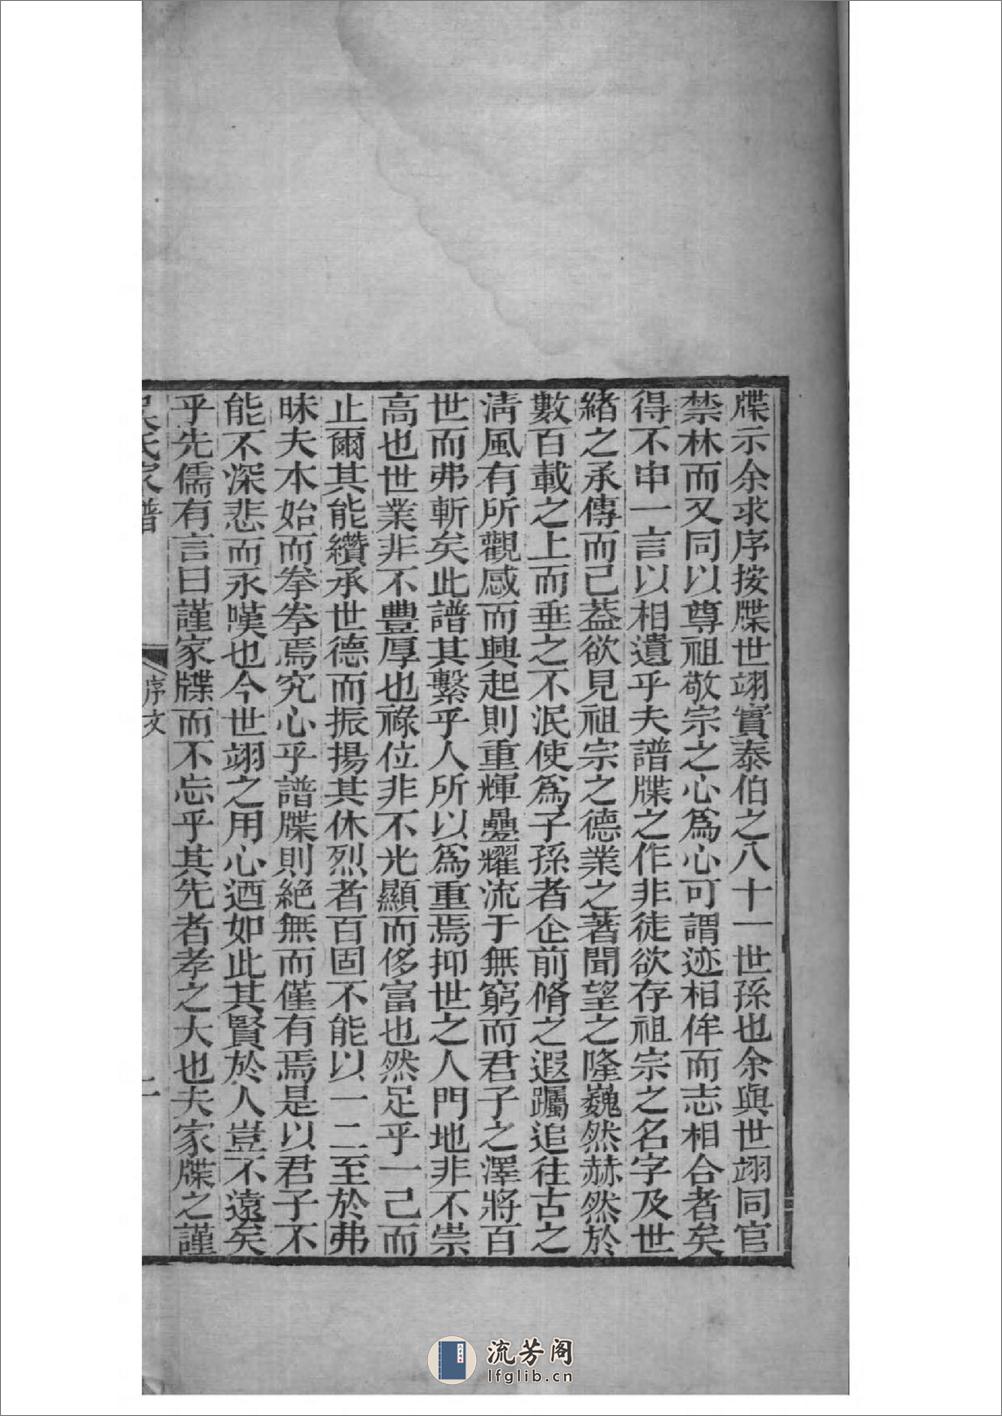 牒示余求序按牒世翊實泰伯之八十一世孫也余與世翊同官
禁林而又同以尊祖敬宗之心爲心可謂迹相侔而志相合者矣
得不申一言以相遺乎夫譜牒之作非徒欲存祖宗之名字及世
緒之承傳而已葢欲見祖宗之德業之著聞望之隆巍然赫然於
數百載之上而垂之不泯使爲子孫者企前脩之遐躅追往古之
淸風有所觀感而興起則重輝疊耀流于無窮而君子之澤將百
世而弗斬矣此譜其繫乎人所以爲重焉抑世之人門地非不崇
高也世業非不豐厚也祿位非不光顯而侈富也然足乎一己而
止爾其能纘承世德而振揚其休烈者百固不能以一二至於弗
昧夫本始而拳拳焉究心乎譜牒則絕無而僅有焉是以君子不
能不深悲而永嘆也今世翊之用心迺如此其賢於人豈不遠矣
乎先儒有言曰謹家牒而不忘乎其先者孝之大也夫家牒之謹
吳氏家譜
序文
二
流芳阁
lfglib.cn